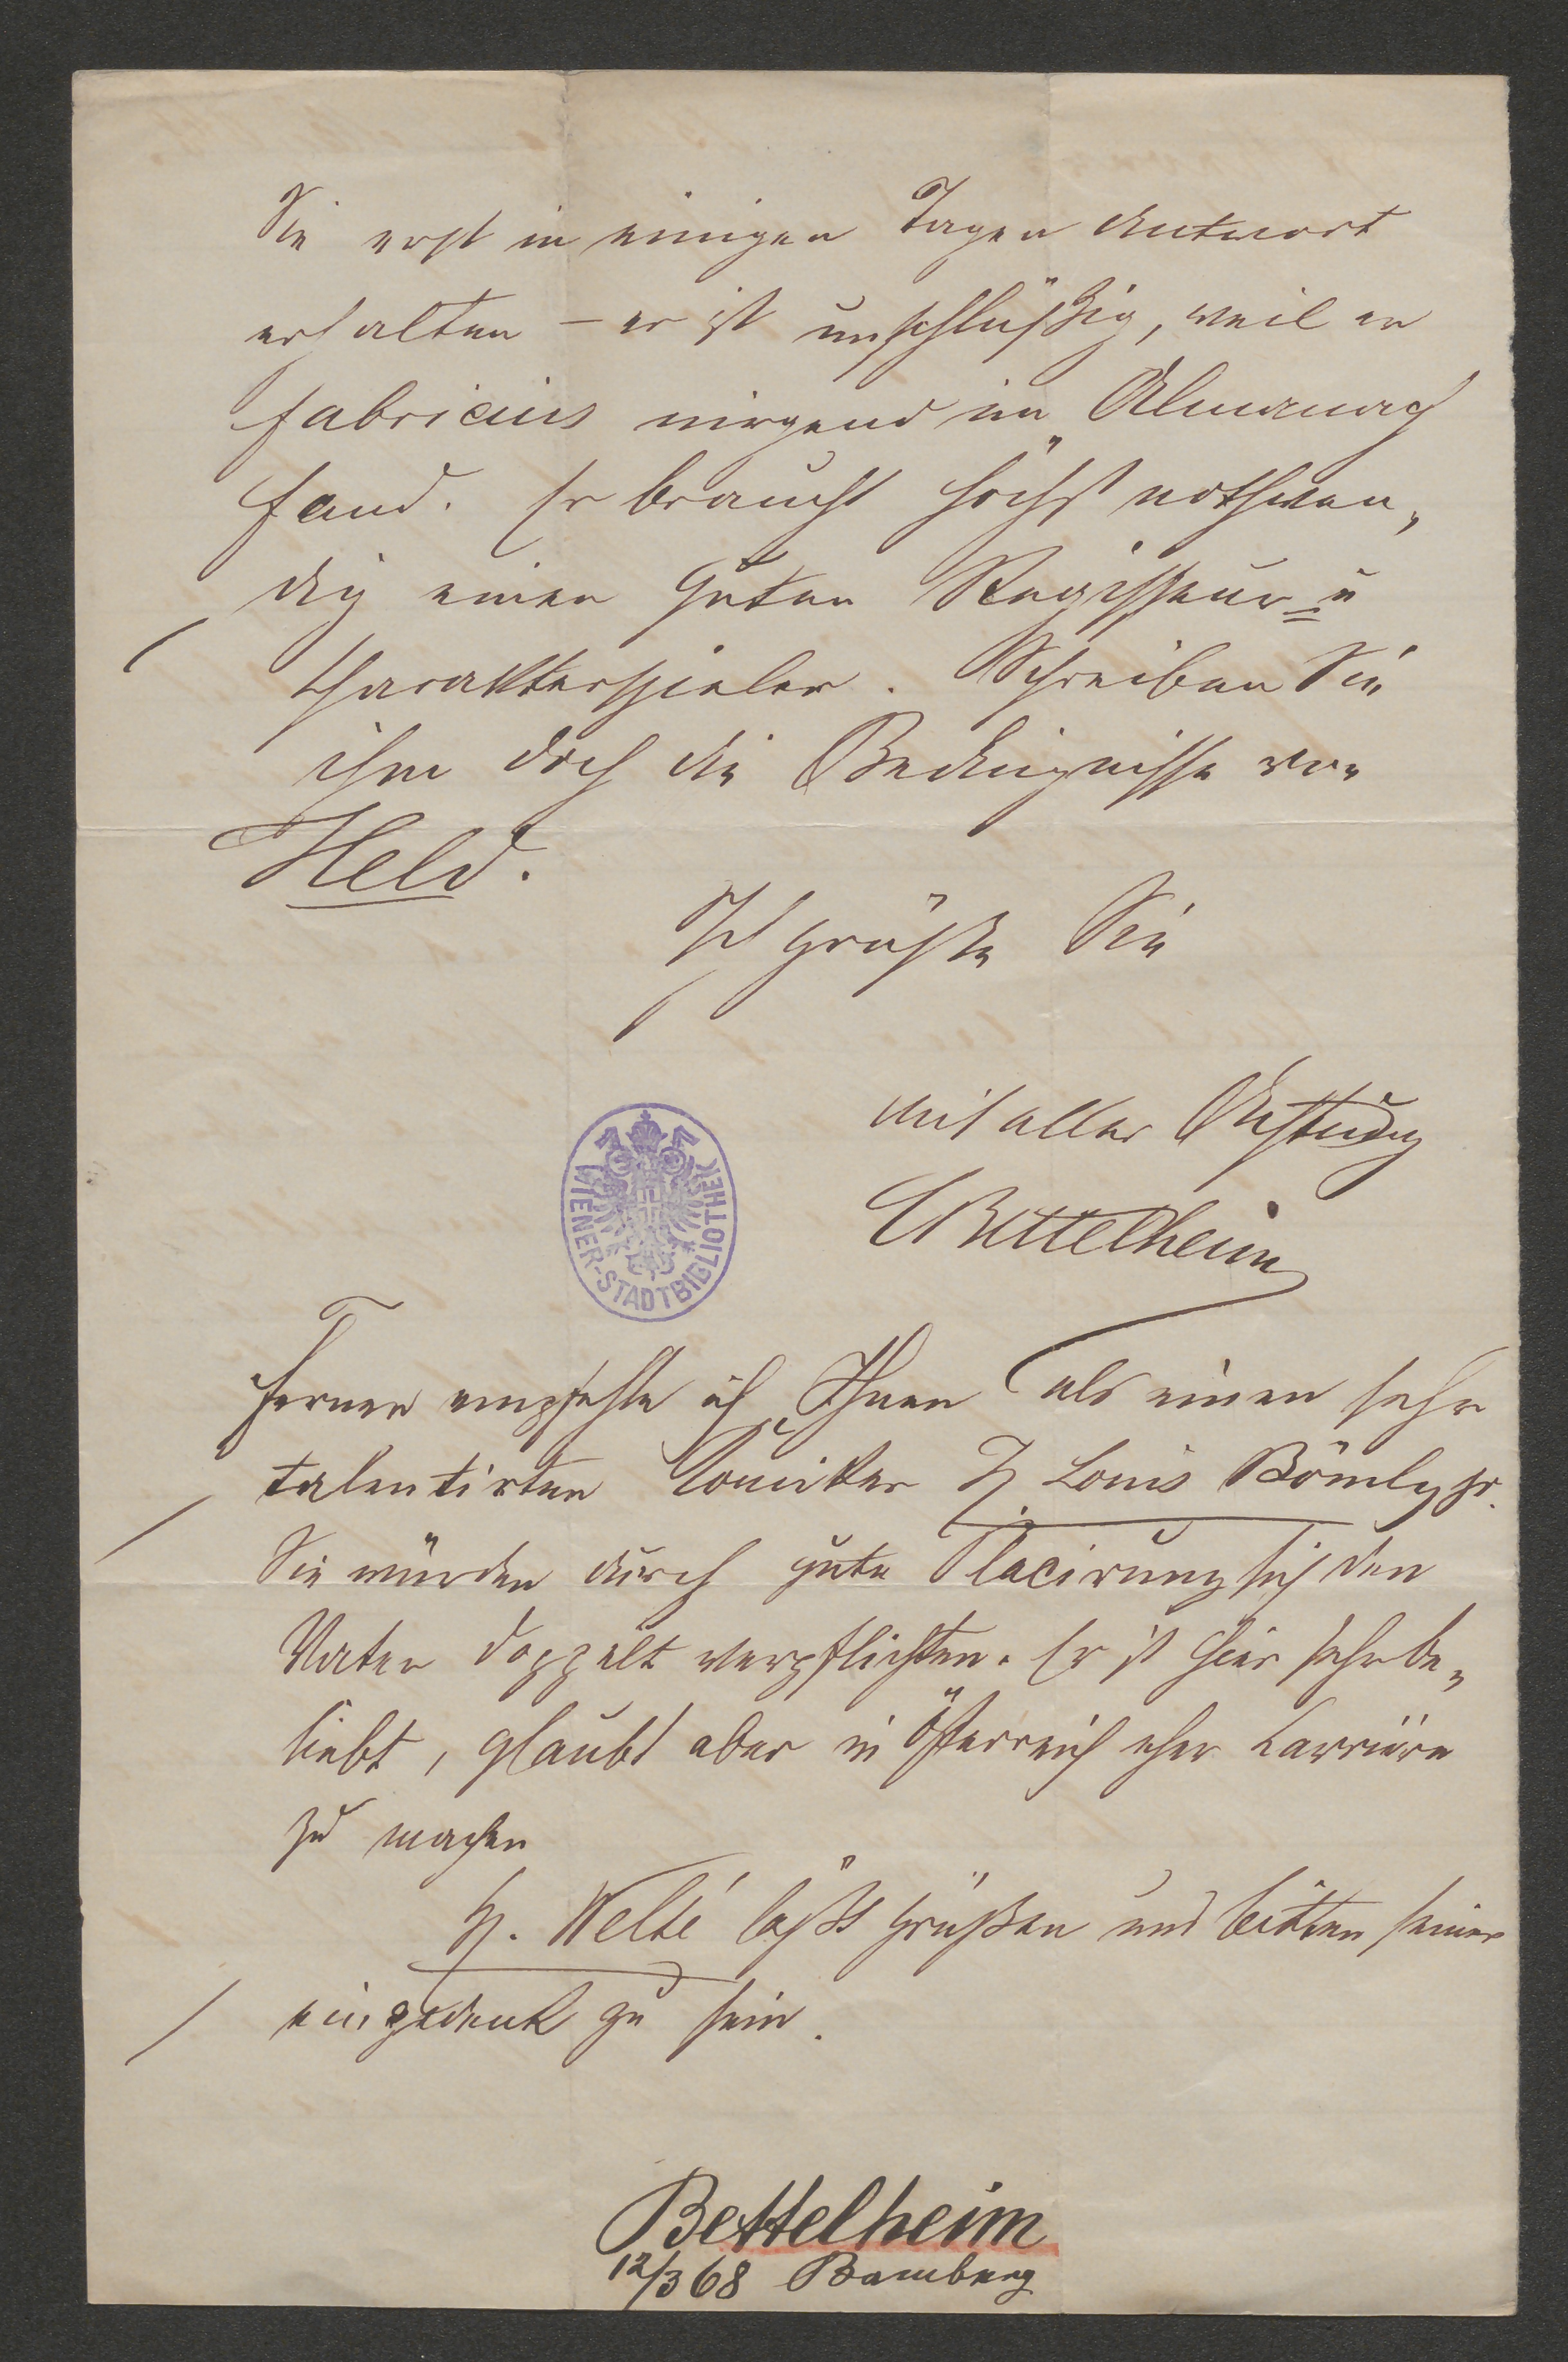 Sie erst in einigen Tagen Antwort
erhalten – er ist unschlüßig, weil er
Fabricius nirgend im Almanach
fand. Er braucht höchst nothwen„
dig einen guten Regisseur u
Charakterspieler. Schreiben Sie
ihm doch die Bedingnisse von
Held.
Ich grüße Sie
mit aller Achtung
CBettelheim
WIENER-STADTBIBLIOTHEK
Ferner empfehle ich Ihnen als einen sehr
talentirten Komiker H Louis Bömly jr.
Sie würden durch gute Placirung sich den
Vater doppelt verpflichten. Er ist hier sehr be„
liebt, glaubt aber in Österreich eher Carrière
zu machen
H. Welté läßt grüßen und bitten seiner
eingedenk zu sein.
Bettelheim
12/3 68 Bamberg